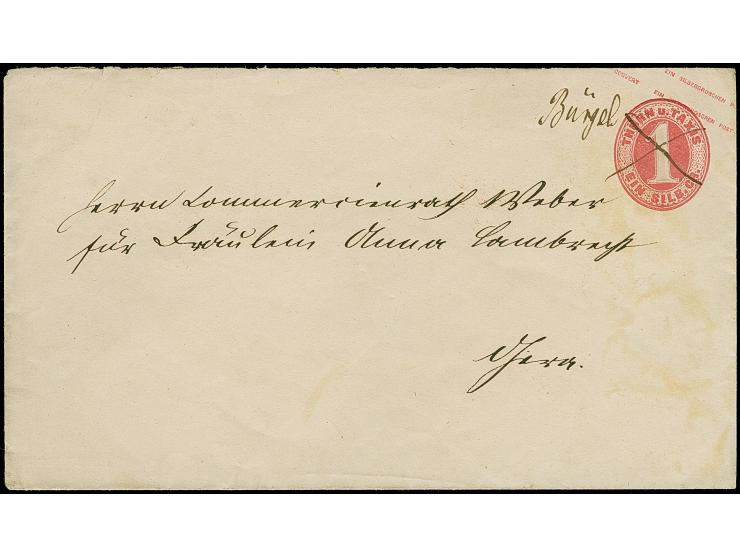 COUVERT EIN SILBERGROSCHEN P
EIN GROSCHEN POST-
Bürgel
THURN U. TAXIS
1
EIN SILB. GR.
Herrn Commercienrath Weber
für Fräulein Anna Lambrecht
Gera.